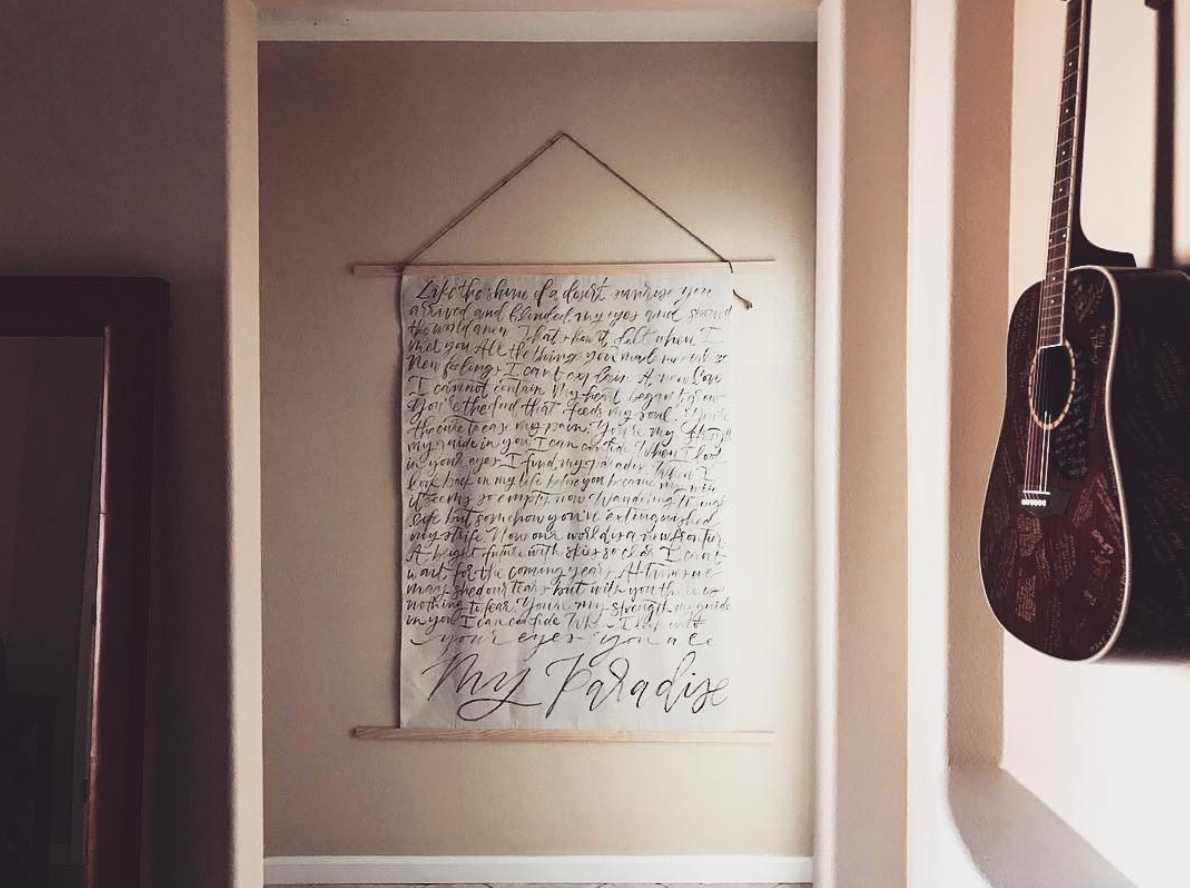 Like the shine of a desert sunrise you
arrived and blinded my eyes and showed
the world anew That's how it felt when I
met you All the things you made me
New feelings I can't explain A new love
I cannot contain My heart began to grow
You're the food that feeds my soul You're
the cure to ease my pain You're my strength
my guide in you I can confide When I look
in your eyes I find my paradise When I
look back on my life before you became my
it seems so empty now Wandering through
life but somehow you've extinguished
my strife Now our world is a new frontier
A bright future with skies so clear I can't
wait for the coming years At times we
may shed our tears but with you there is
nothing to fear You're my strength my guide
in you I can confide When I look into
your eyes you are
My Paradise